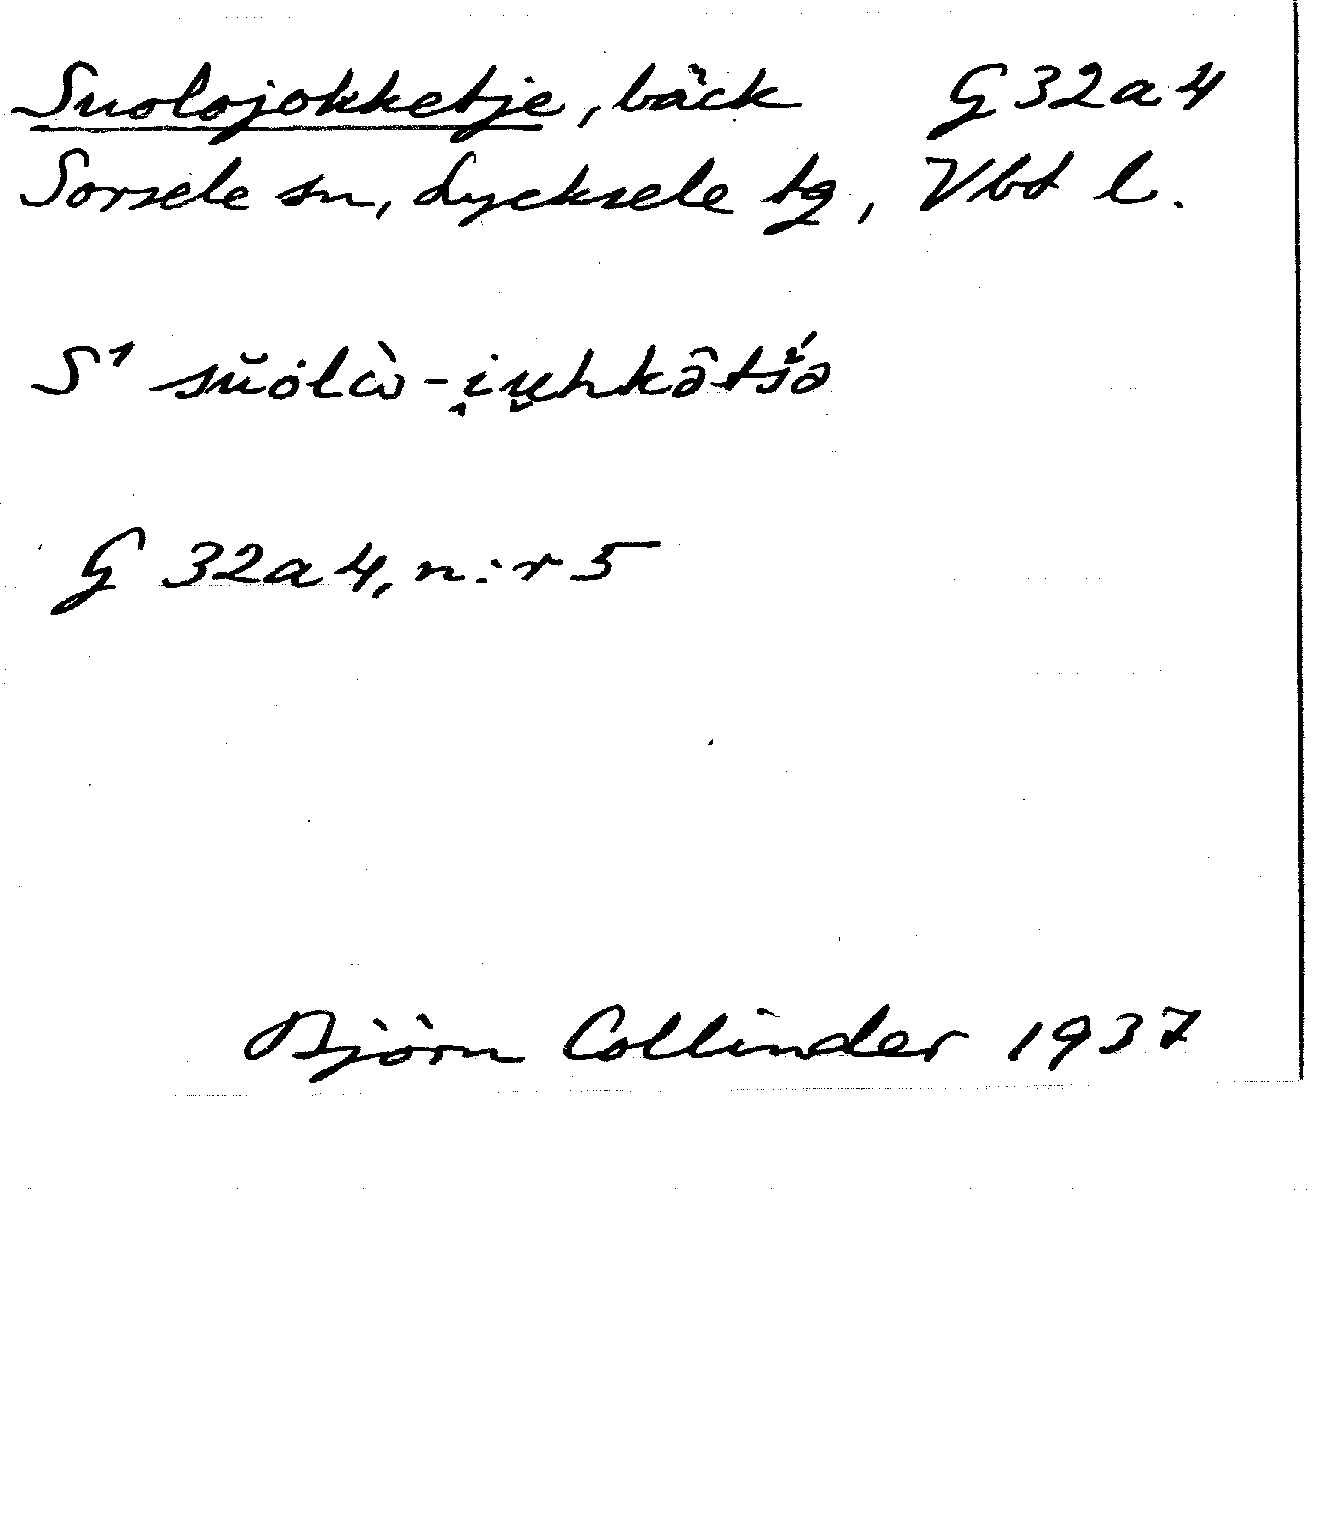 Suolojokketje, bäck G 32 a 4
Sorsele sn, Lycksele tg, Vbt l.
S¹ sŭȯlɑ̀-i̯u̯hkâtś́ə
G 32 a 4, n:r 5
Björn Collinder 1937